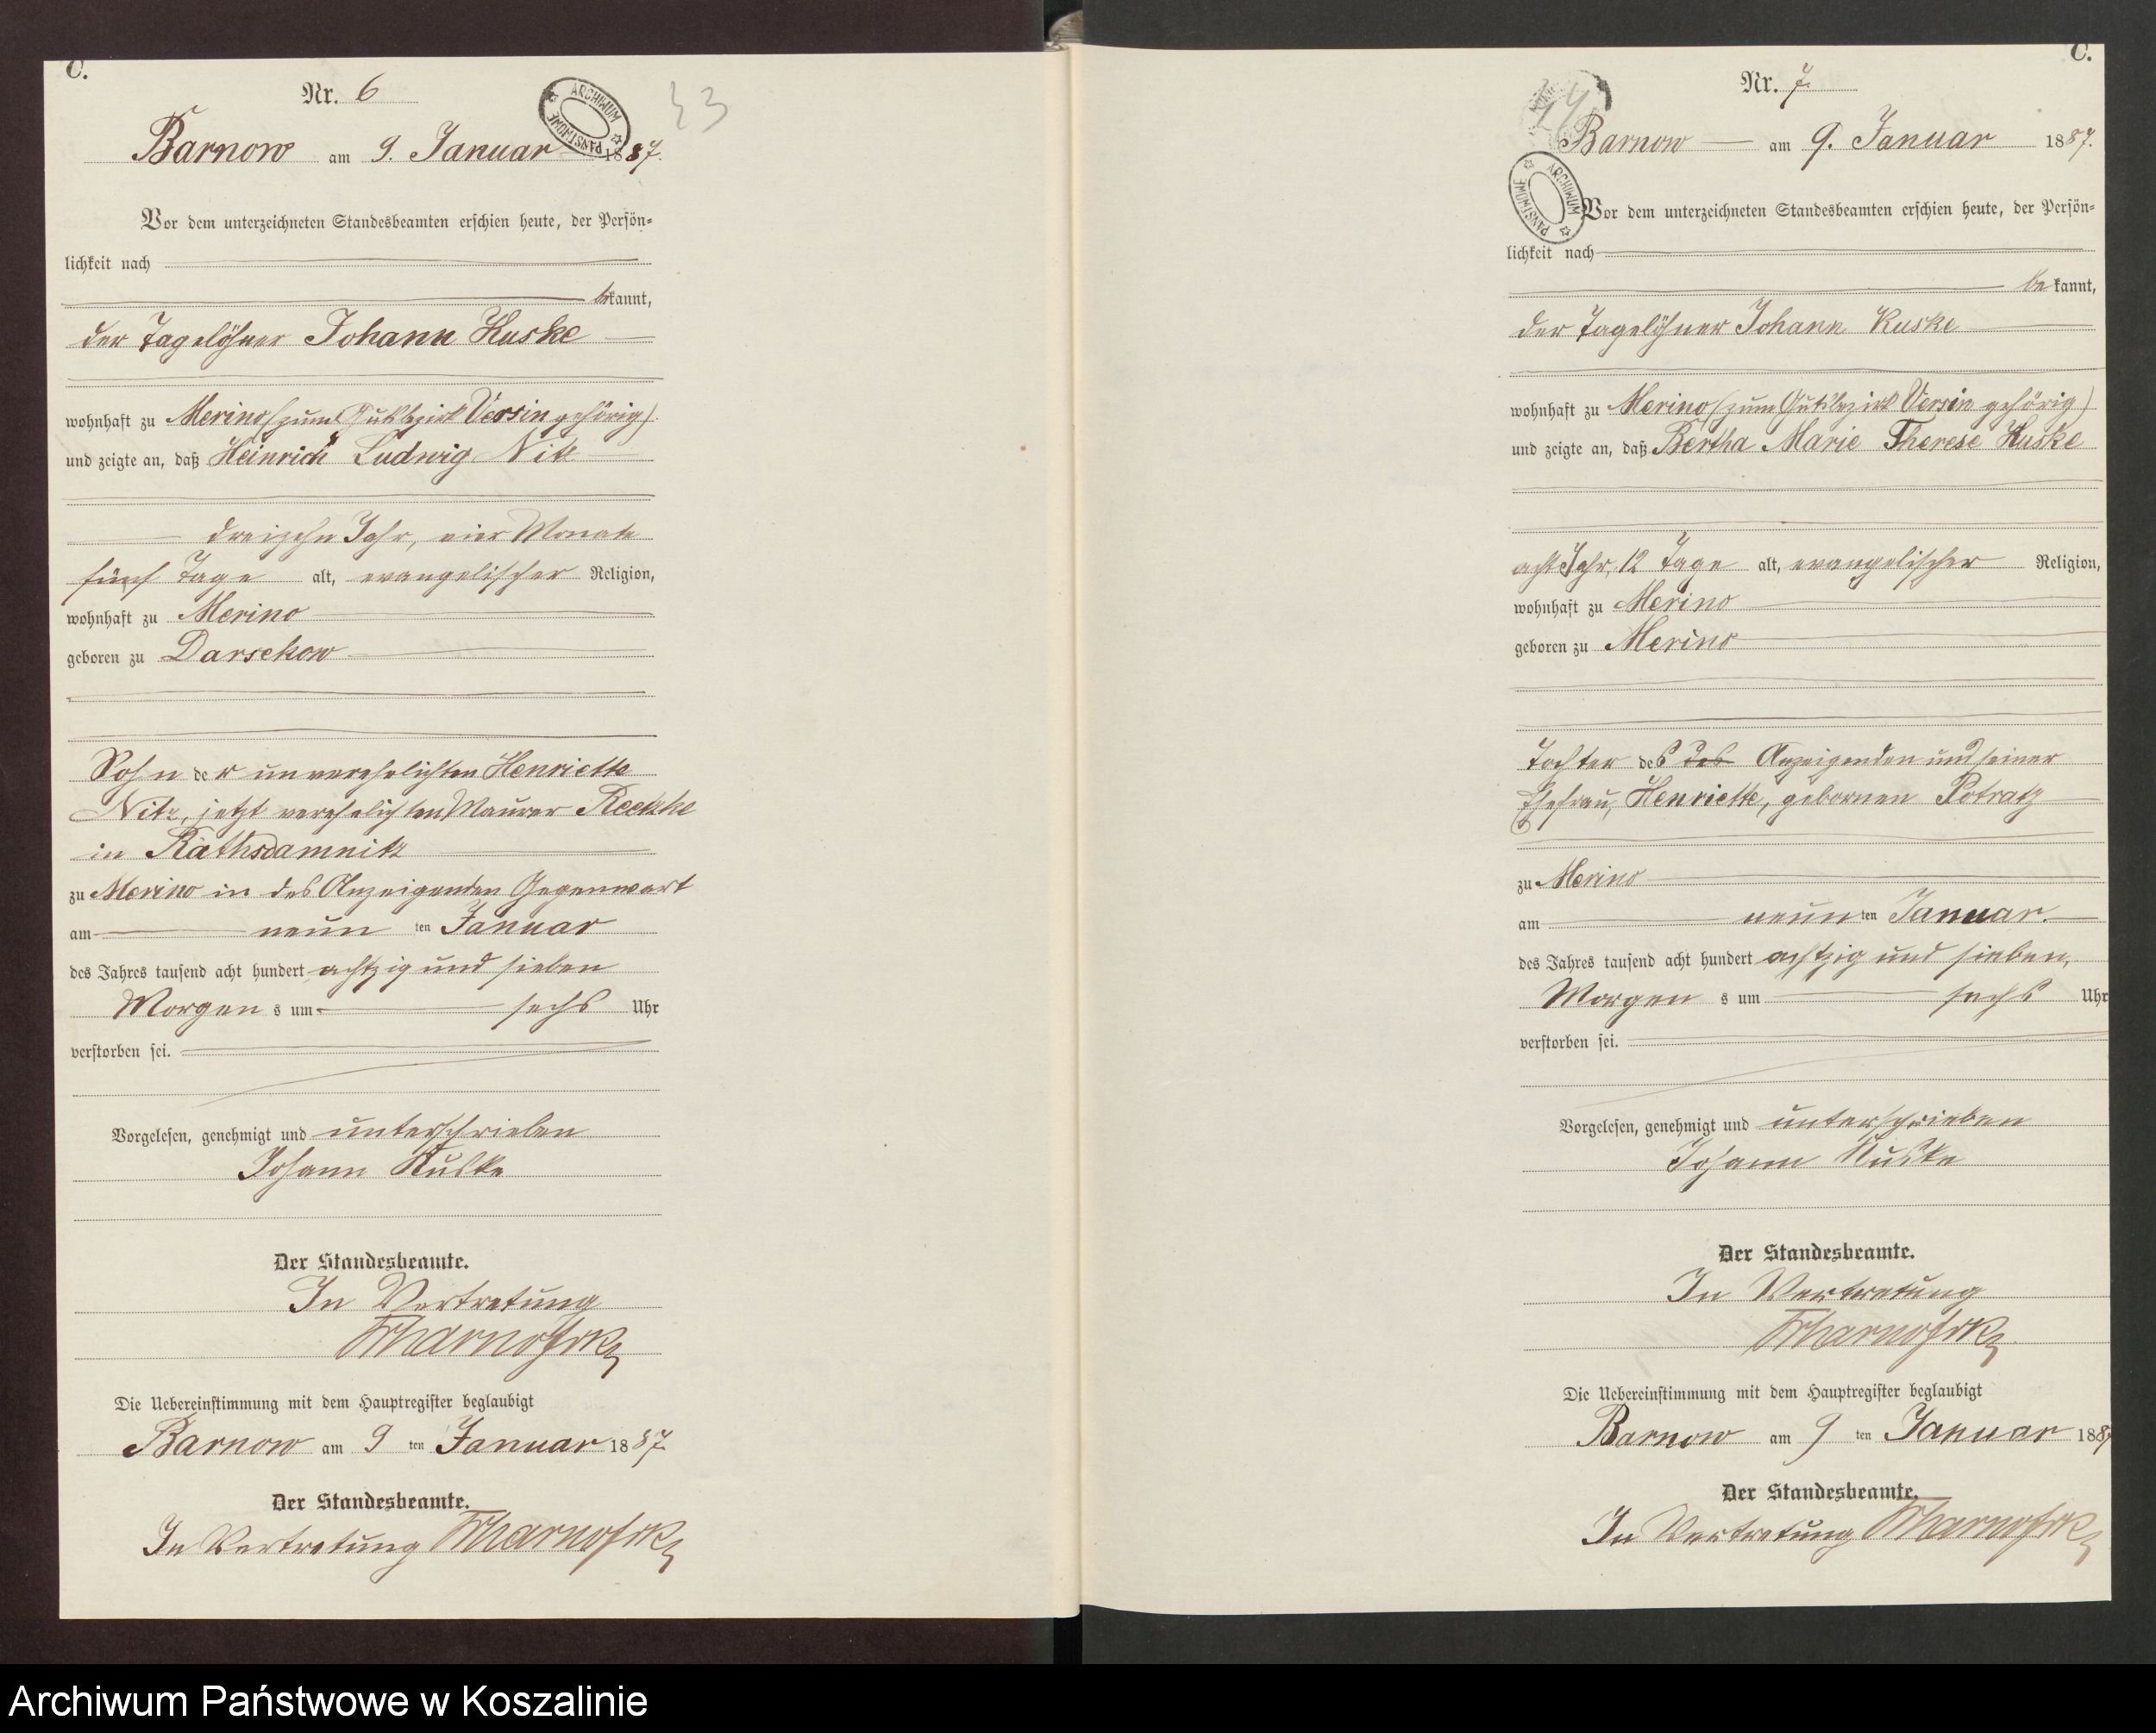 C.
Nr. 6
ARCHIWUM PAŃSTWOWE
Barnow am 9. Januar 1887.
Vor dem unterzeichneten Standesbeamten erschien heute, der Persön-
lichkeit nach
bekannt,
der Tagelöhner Johann Kuske
wohnhaft zu Merino (zum Gutsbezirk Versin gehörig)
und zeigte an, daß Heinrich Ludwig Nitz
dreizehn Jahr, vier Monate
fünf Tage alt, evangelischer Religion,
wohnhaft zu Merino
geboren zu Darsekow
Sohn der unverehelichten Henriette
Nitz, jetzt verehelichten Maurer
in Rathsdamnitz
zu Merino in des Anzeigenden Gegenwart
am neun ten Januar
des Jahres tausend acht hundert achtzig und sieben
Morgen s um sechs Uhr
verstorben sei.
Vorgelesen, genehmigt und unterschrieben
Johann Kuske
Der Standesbeamte.
In Vertretung
Die Uebereinstimmung mit dem Hauptregister beglaubigt
Barnow am 9 ten Januar 1887.
Der Standesbeamte.
In Vertretung
C.
Nr. 7.
Barnow am 9. Januar 1887.
ARCHIWUM PAŃSTWOWE
Vor dem unterzeichneten Standesbeamten erschien heute, der Persön-
lichkeit nach
bekannt,
der Tagelöhner Johann Kuske
wohnhaft zu Merino (zum Gutsbezirk Versin gehörig)
und zeigte an, daß Bertha Marie Therese Kuske
acht Jahr, 12 Tage alt, evangelischer Religion,
wohnhaft zu Merino
geboren zu Merino
Tochter des des Anzeigenden und seiner
Ehefrau, Henriette, gebornen Potratz
zu Merino
am neun ten Januar.
des Jahres tausend acht hundert achtzig und sieben,
Morgen s um sechs Uhr
verstorben sei.
Vorgelesen, genehmigt und unterschrieben
Johann Kuske
Der Standesbeamte.
In Vertretung
Die Uebereinstimmung mit dem Hauptregister beglaubigt
Barnow am 9 ten Januar 1887
Der Standesbeamte.
In Vertretung
Archiwum Państwowe w Koszalinie